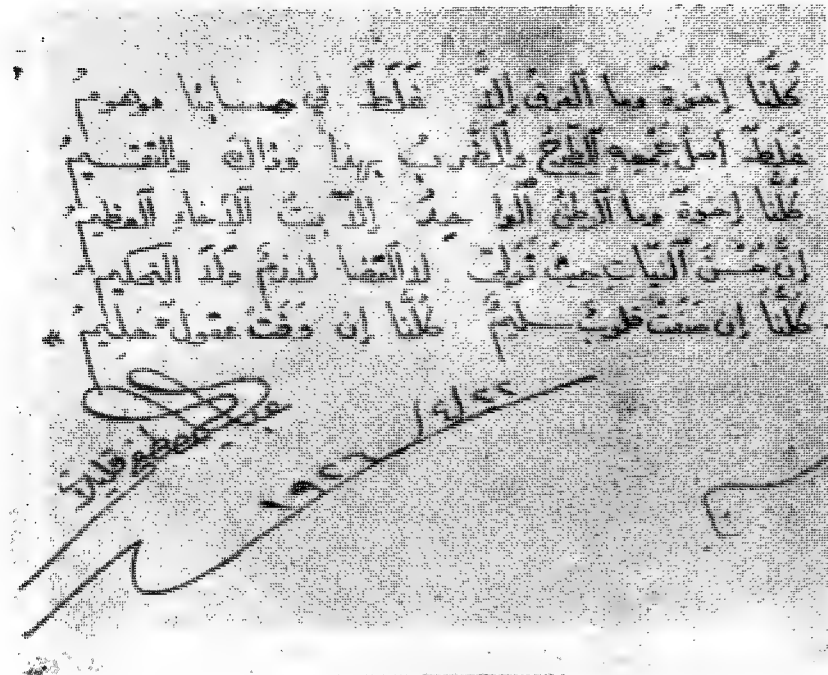 كُلُّنا إخوةٌ وما الفرقُ إلّا غَلَطٌ في حسابنا موهومُ
غَلَطٌ أصلُ جمعه الطرحُ والضربُ بهذا وذاك والتقسيمُ
كُلُّنا إخوةٌ وما الوطنُ الواحدُ إلّا بيتُ الإخاءِ العظيمُ
إنّ حُسْنَ النيّاتِ حيثُ تولّت لا القضا لازمٌ ولا التحكيمُ
كُلُّنا إن صَفَتْ قلوبٌ سليمٌ كُلُّنا إن وَفَتْ عقولٌ حليمُ
١٩٢٦/٤/٢٢